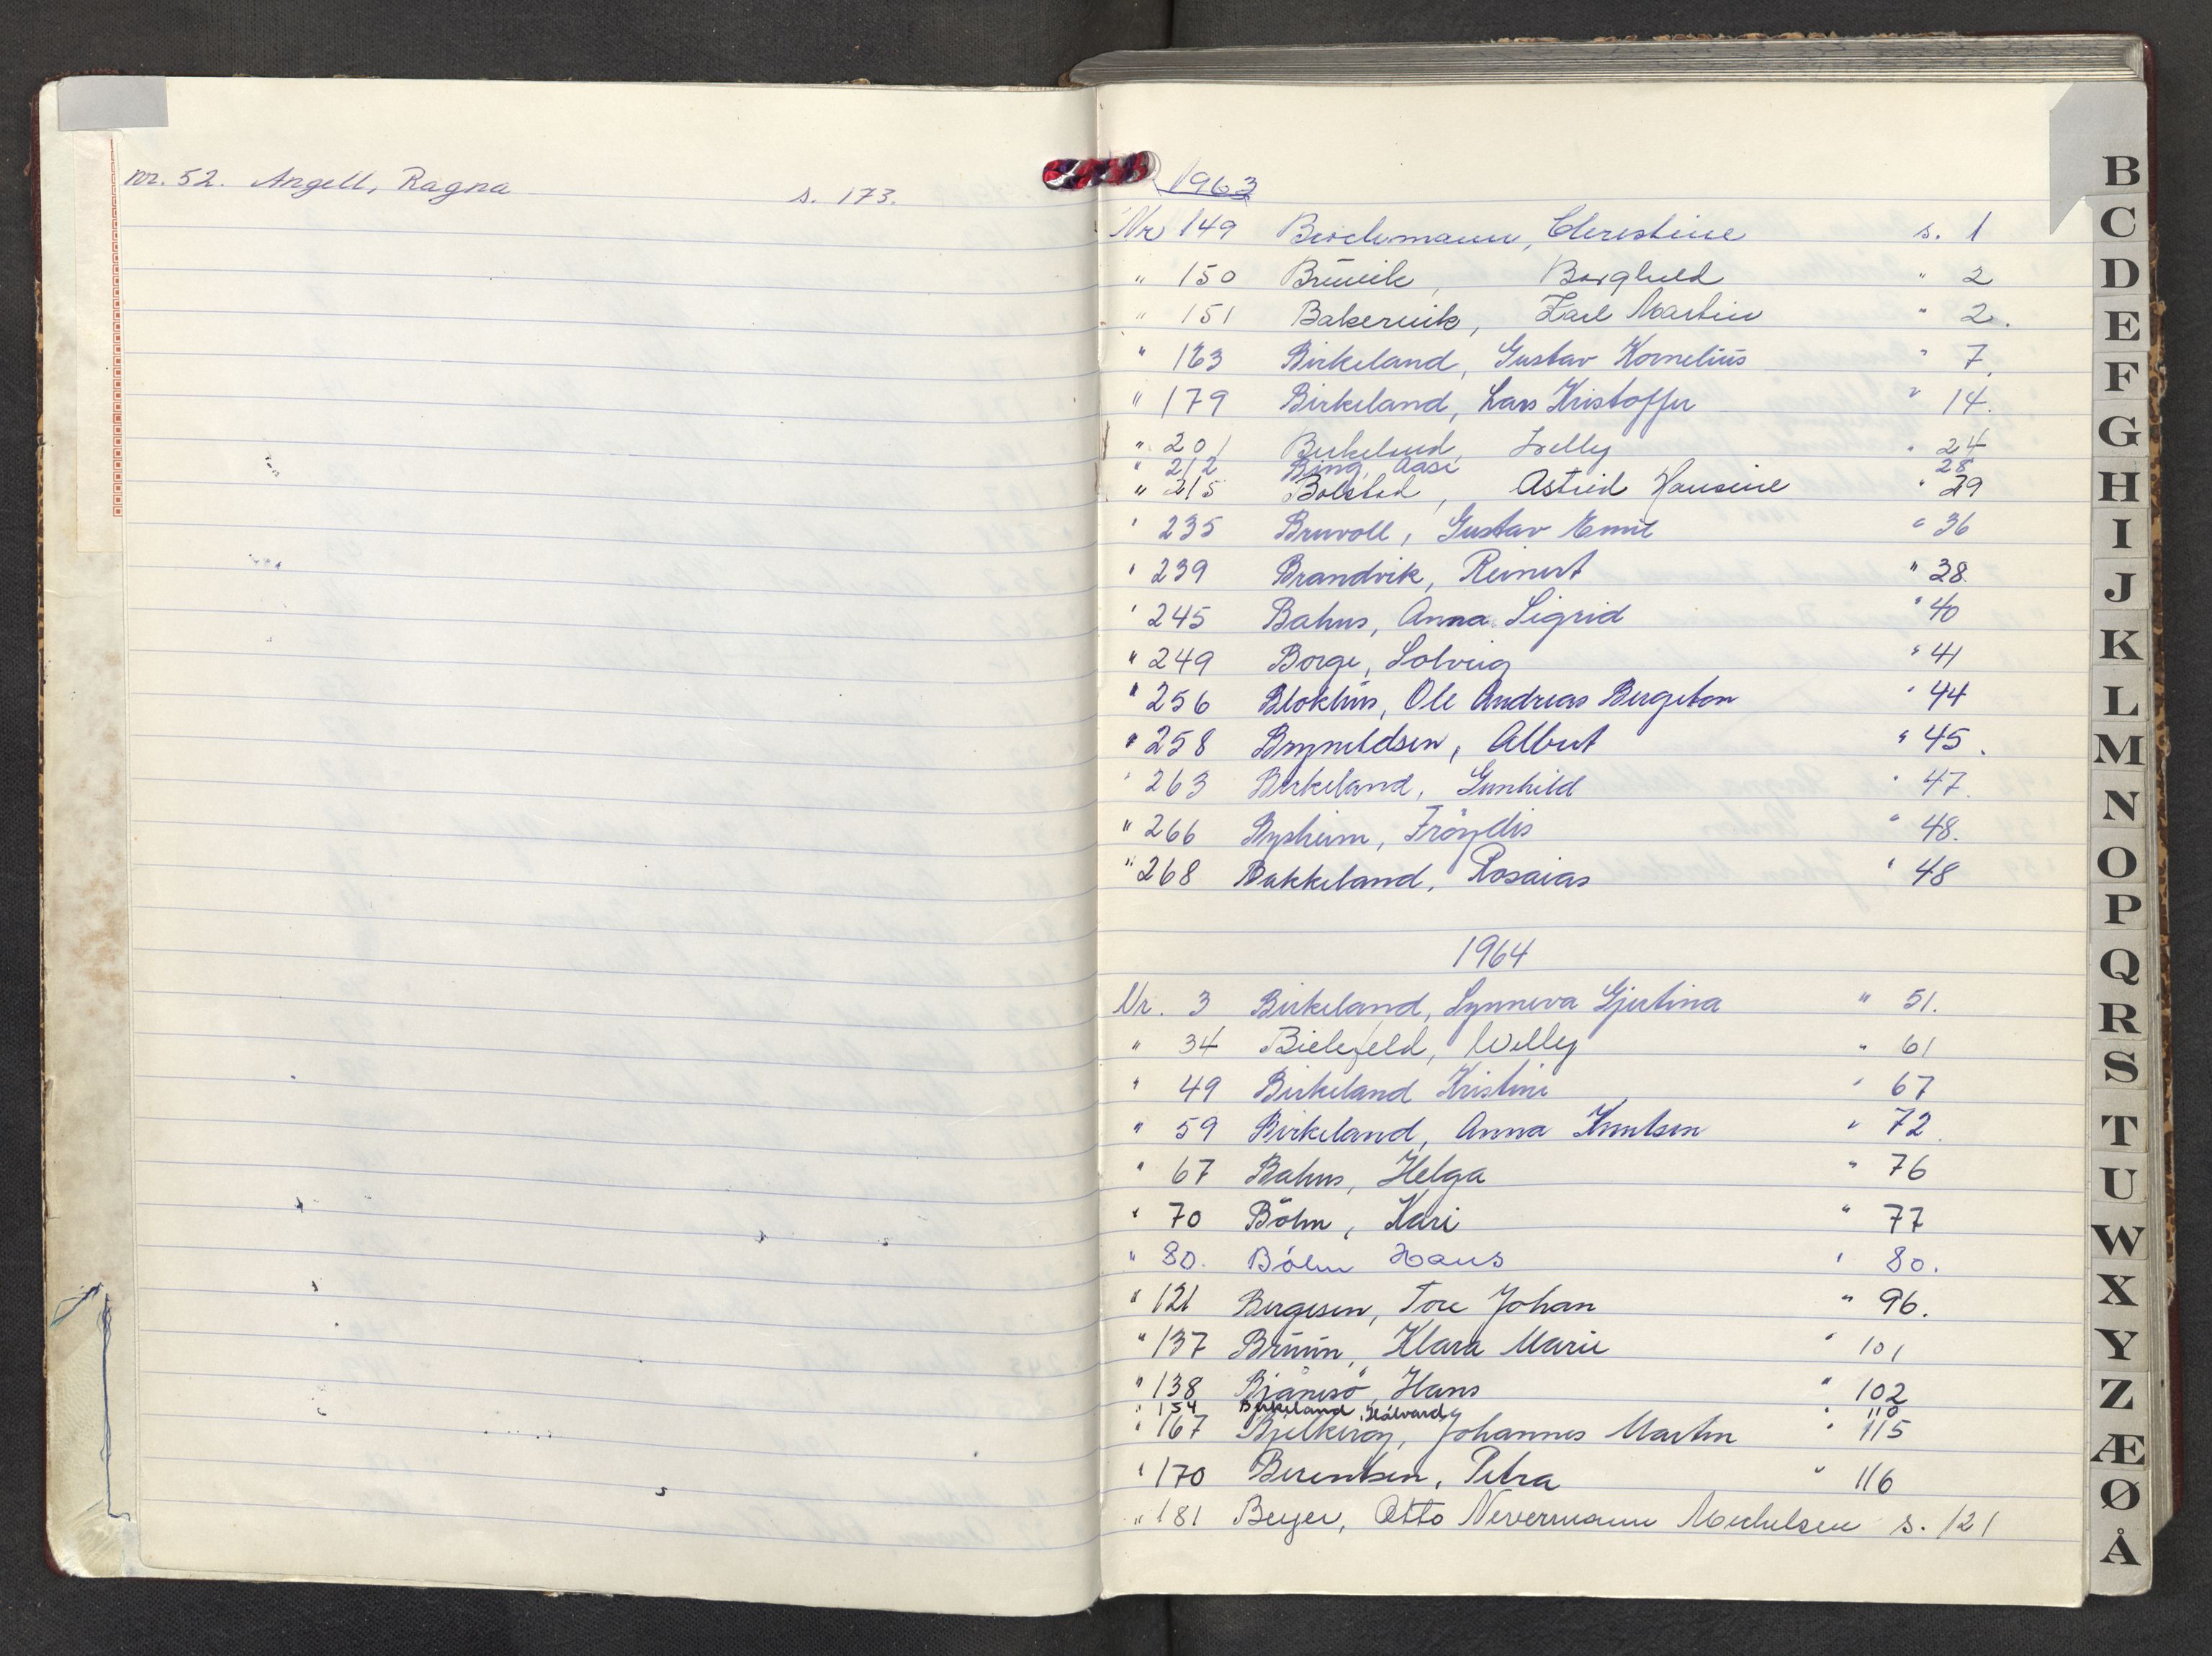 nr. 52. Angell, Ragna s. 173.
1963
Nr 149 Brochmann, Christine s. 1
" 150 Bruvik, Borghild " 2
" 151 Bakervik, Karl Martin " 2.
" 163 Birkeland, Gustav Kornelius " 7.
" 179 Birkeland, Lars Kristoffer " 14.
" 201 Birkeland, Willy " 24
" 212 Bing, Aase 28
" 215 Bolstad, Astrid Hansine " 29
" 235 Bruvoll, Gustav Emil " 36
" 239 Brandvik, Reinert " 38
" 245 Bahus, Anna Sigrid " 40
" 249 Borge, Solveig " 41
" 256 Blokhus, Ole Andreas Bergeton " 44
" 258 Brynildsen, Albert " 45.
" 263 Birkeland, Gunhild " 47.
" 266 Bysheim, Fröydis " 48.
" 268 Bakkeland, Rosaias " 48
1964
Nr. 3 Birkeland, Synneva Gjertina " 51.
" 34 Bielefeld, Willy " 61
" 49 Birkeland Kristine " 67
" 59 Birkeland, Anna Knutsen " 72.
" 67 Bahus, Helga " 76
" 70 Böhm, Kari " 77
" 80. Böhm Hans " 80.
" 121 Bergesen, Tore Johan " 96.
" 137 Bruun, Klara Marie " 101
" 138 Bjånesö, Hans " 102
" 154 Birkeland, Halvard " 110
" 167 Bjelkeröy, Johannes Martin " 115
" 170 Berentsen, Petra " 116
" 181 Beyer, Otto Nevermann Michelsen s. 121
B
C
D
E
F
G
H
I
J
K
L
M
N
O
P
Q
R
S
T
U
W
X
Y
Z
Æ
Ø
Å